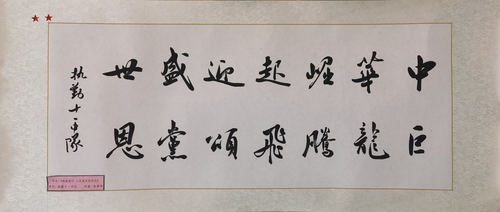 中華崛起迎盛世
巨龍騰飛頌黨恩
执勤十中隊